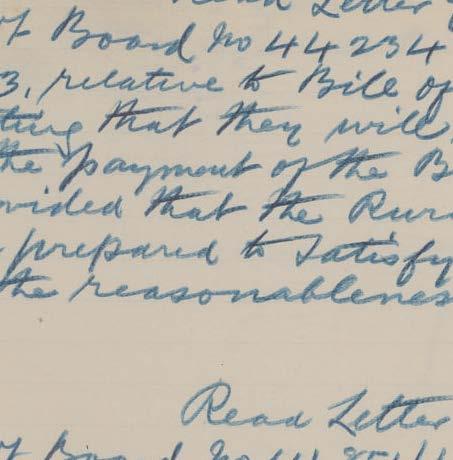 Read Letter
of Board No 44234
3, relative to Bill of
ting that they will
the payment of the B
ovided that the Rur
prepared to Satisfy
the reasonablenes
Read Letter
of Board No